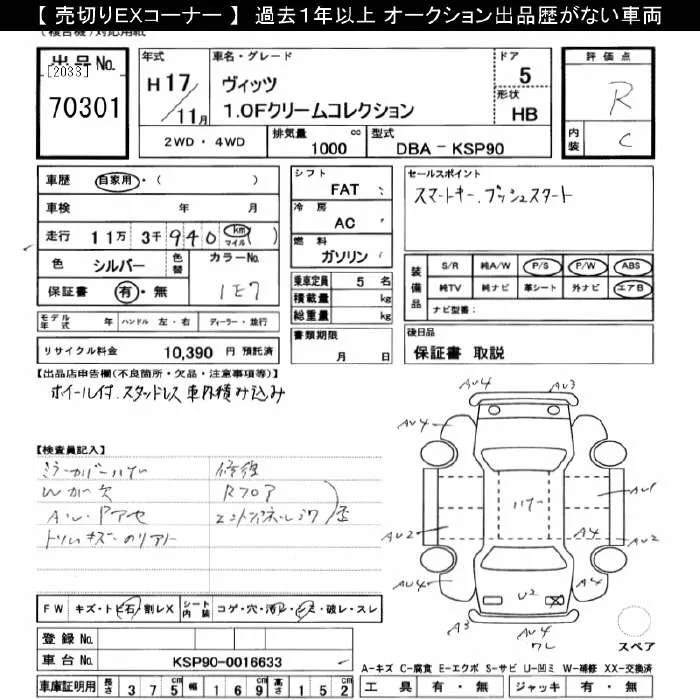 【 売切りEXコーナー 】 過去1年以上 オークション出品歴がない車両
出品No.
[2033]
70301
年式
H17/11月
車名・グレード
ヴィッツ
1.0Fクリームコレクション
ドア
5
形状
HB
2WD・4WD
排気量 cc
1000
型式
DBA-KSP90
評価点
R
内装
C
車歴 自家用・( )
車検 年 月
走行 11万 3千940 km マイル ( )
色 シルバー 色替 カラーNo.
保証書 有・無 1E7
モデル年式 年 ハンドル 左・右 ディーラー・並行
リサイクル料金 10,390 円 預託済
シフト
FAT
冷房
AC
燃料
ガソリン
乗車定員 5 名
積載量 kg
総重量 kg
書類期限
月 日
セールスポイント
スマートキー.プッシュスタート
装備品
S/R 純A/W P/S P/W ABS
純TV 純ナビ 革シート 外ナビ エアB
ナビ型番:
後日品
保証書 取説
【出品店申告欄(不良箇所・欠品・注意事項等)】
ホイール付.スタッドレス 車内積み込み
【検査員記入】
ミラーカバーハゲ
Wガ欠
トリムキズ
修復
Rフロア
歪
AU4
AU3
AU4
AU4
ハゲー
AU1
AU2
A4
AU2
AU4
A4
U2
A3
AU4
スペア
FW キズ・トビ石・割レX シート内装 コゲ・穴・汚レ・シミ・破レ・スレ
登録 No.
車台 No. KSP90-0016633
車庫証明用 長さ 375cm 幅 169cm 高さ 152cm
A-キズ C-腐食 E-エクボ S-サビ U-凹ミ W-補修 XX-交換済
工具 有・無 ジャッキ 有・無